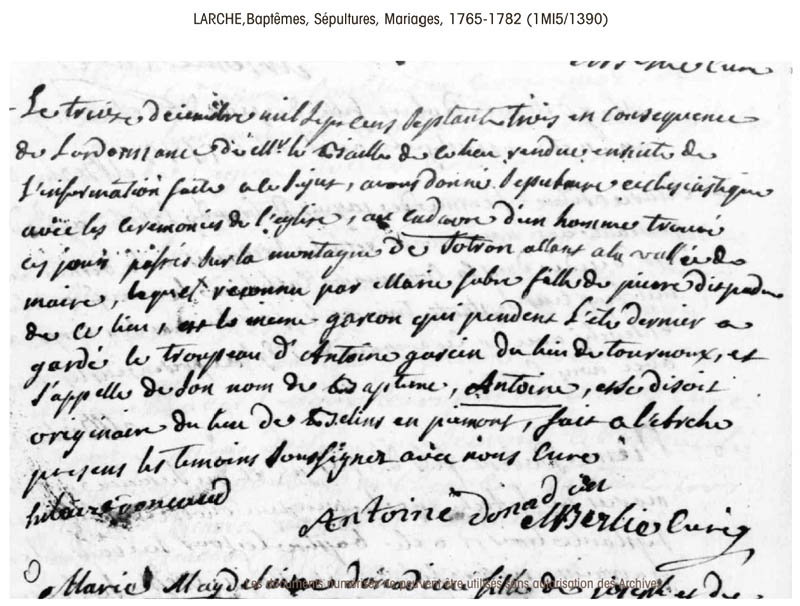 LARCHE,Baptêmes, Sépultures, Mariages, 1765-1782 (1MI5/1390)
Le treize decembre mil sept cens septante trois en consequence
de l'ordonnance de Mr. le Baille de ce lieu rendue ensuite de
l'information faite a ce sujet, avons donné sepulture eclesiastique
avec les ceremonies de l'eglise, au cadavre d'un homme trouvé
ces jours passés sur la montagne de allant a la vallée de
maire, lequel reconnu par Marie fabre fille de pierre
de ce lieu, est le meme garcon qui pendent l'eté dernier a
gardé le troupeau d'Antoine garcin du lieu de tournoux, et
s'appelle de son nom de Bapteme, Antoine, et se disoit
originaire du lieu de en piemont, fait a l'arche
presens les temoins soussignez avec nous Curé
hilaire
Antoine donad
MBerlie Curé
Marie Magdeleine fille de joseph et de
Les documents numérisés ne peuvent être utilisés sans autorisation des Archives